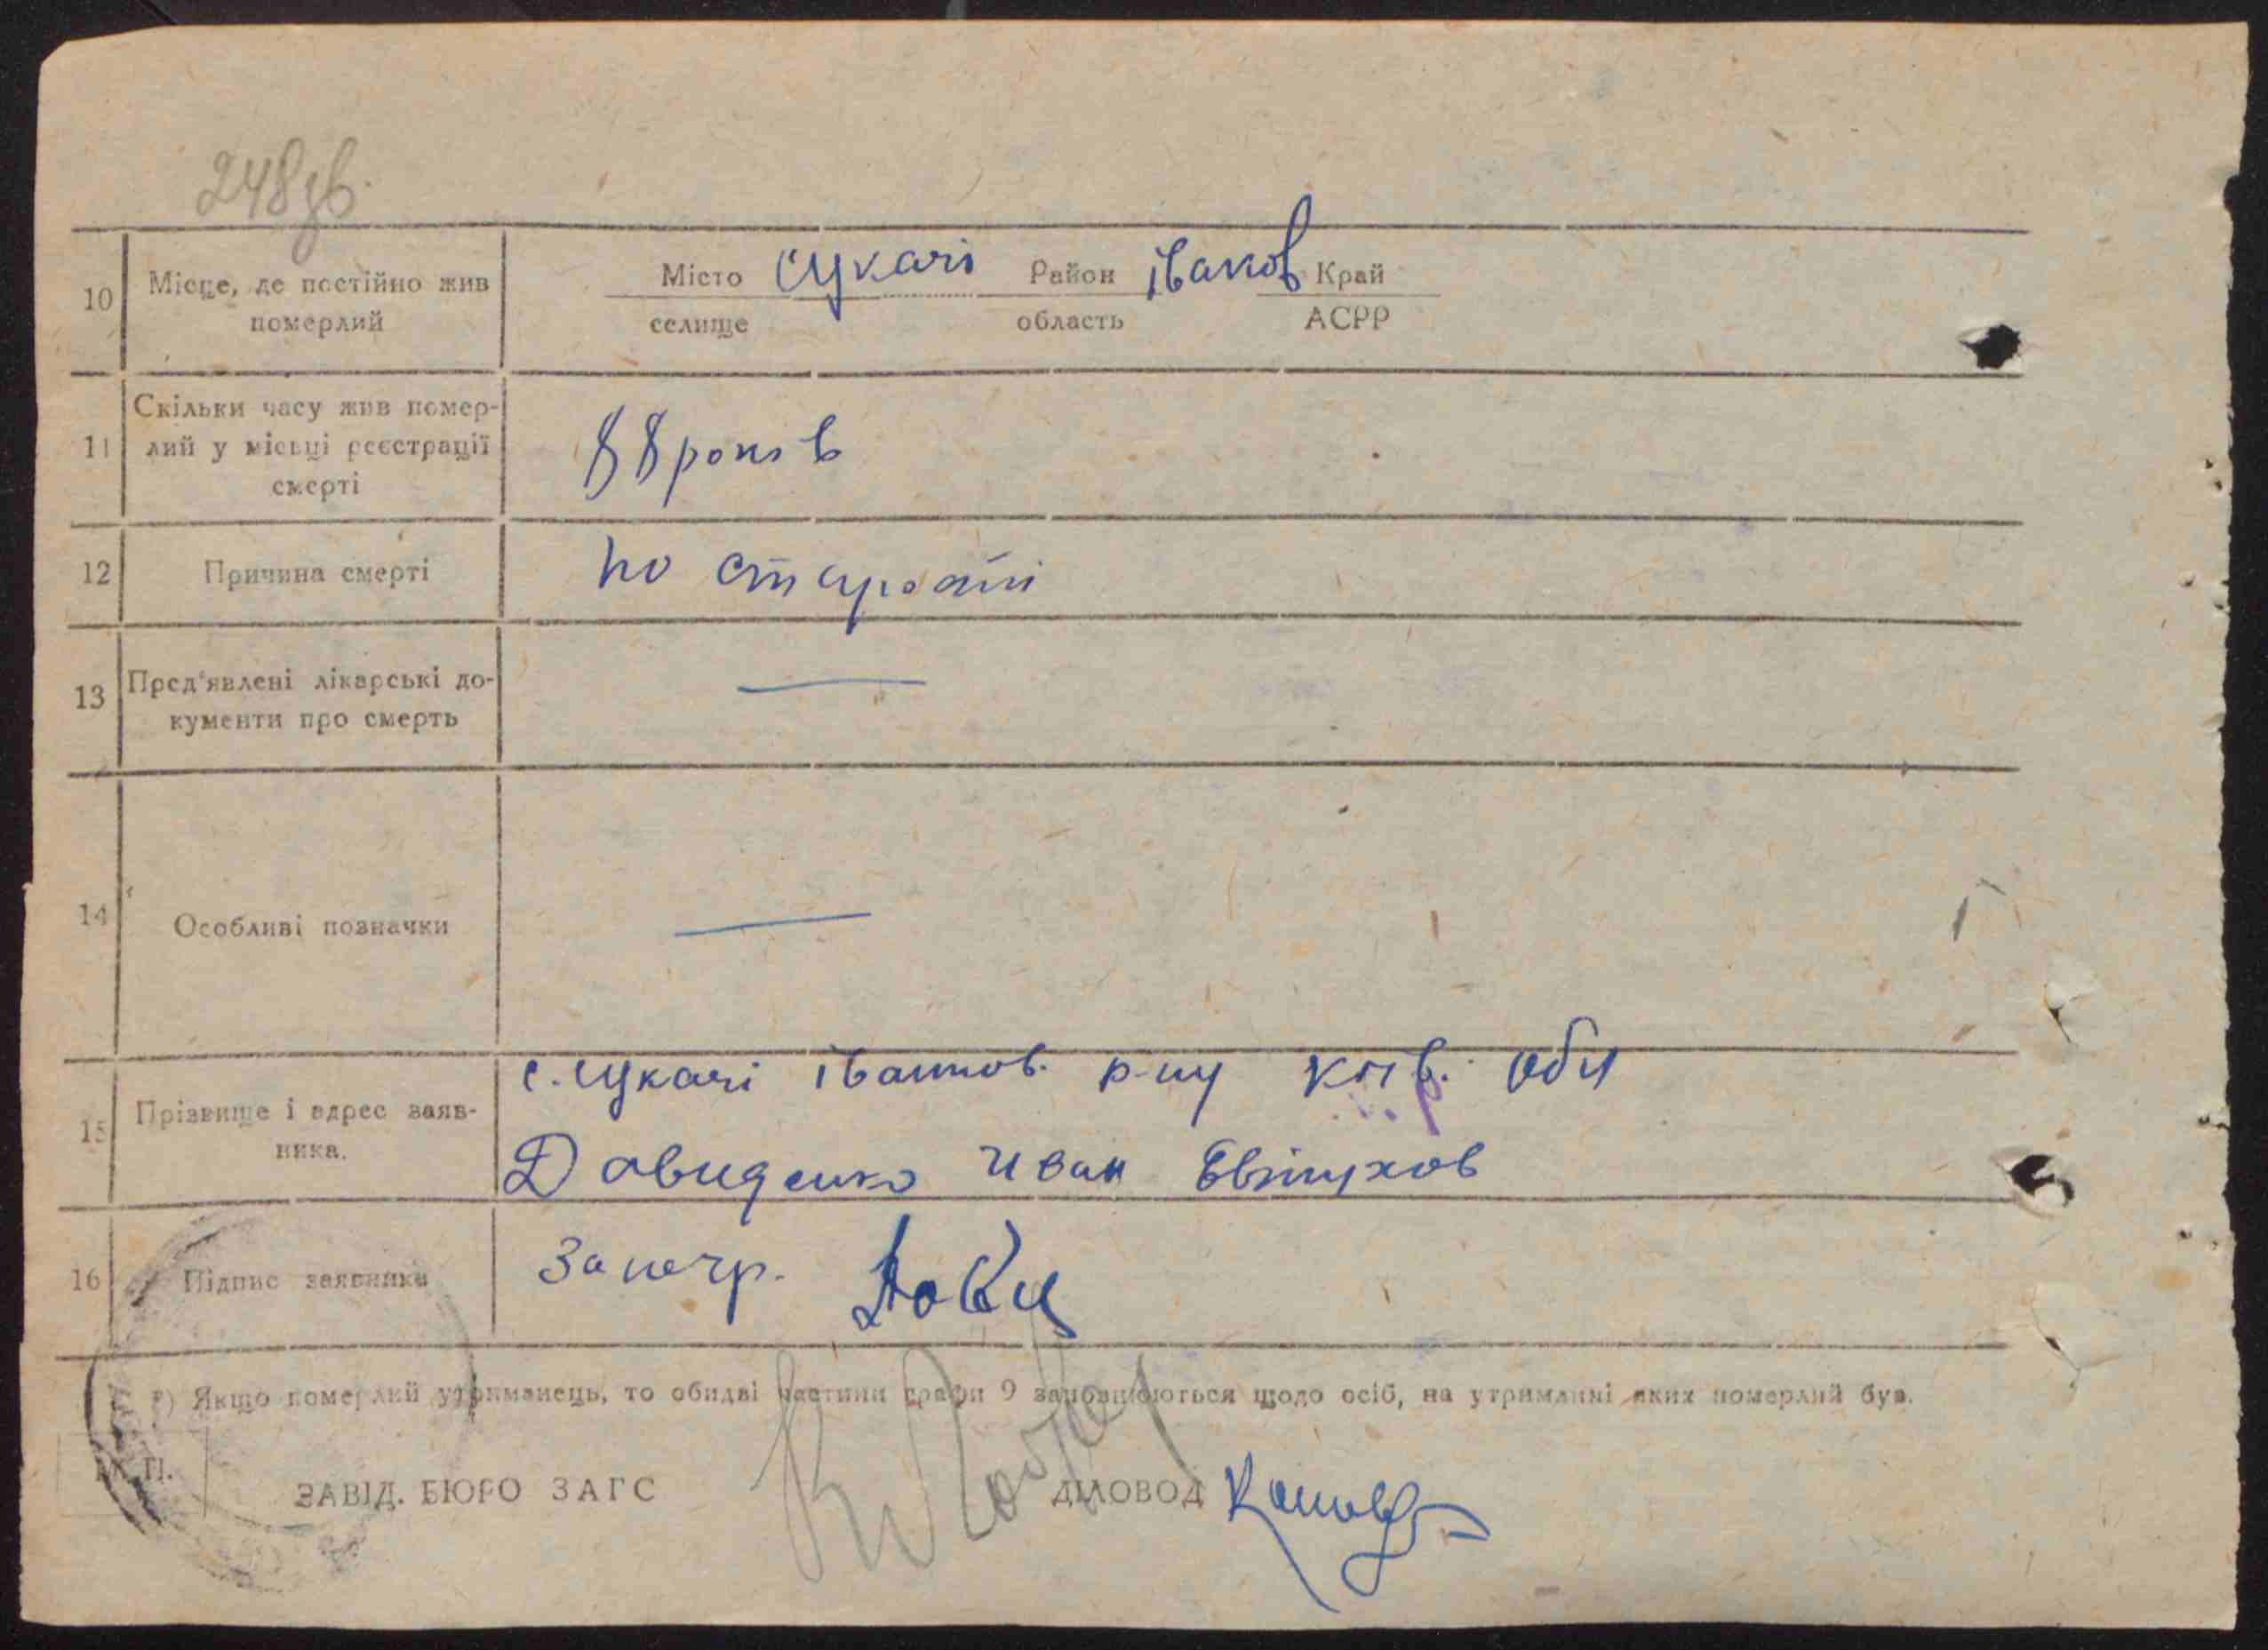 248зв.
10 Місце, де постійно жив померлий
Місто Сукачі Район Іванков Край
селище область АСРР
11 Скільки часу жив помер-
лий у місьці реєстрації
смерті
88 років
12 Причина смерті
по старості
13 Пред'явлені лікарські до-
кументи про смерть
14 Особливі позначки
с. Сукачі Іванков. р-ну Київ. обл
15 Прізвище і адрес заяв-
ника.
Давиденко Иван Евтухов
16 Підпис заявника
За негр.
*) Якщо померлий утриманець, то обидві частини графи 9 заповнюються щодо осіб, на утриманні яких померлий був.
М. П.
ЗАВІД. БЮРО ЗАГС
ДІЛОВОД